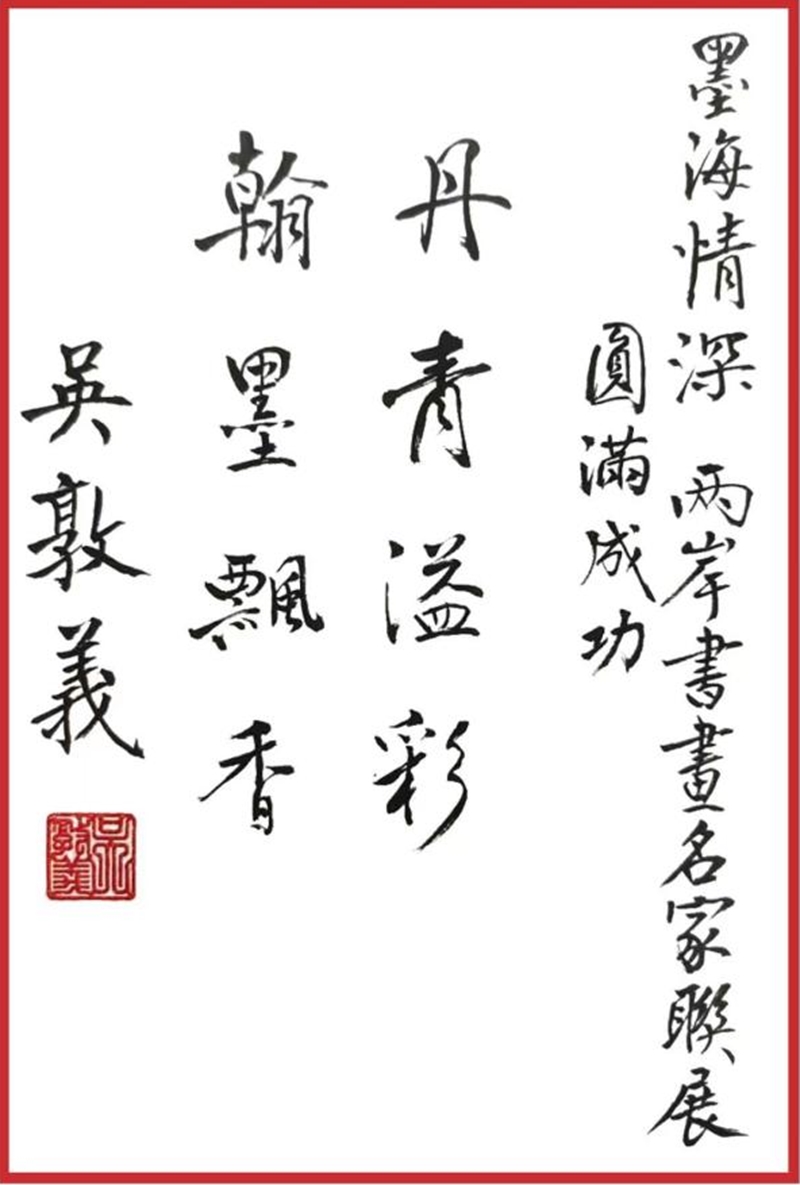 墨海情深 两岸書畫名家聯展
圓滿成功
丹青溢彩
翰墨飄香
吳敦義
吳敦義